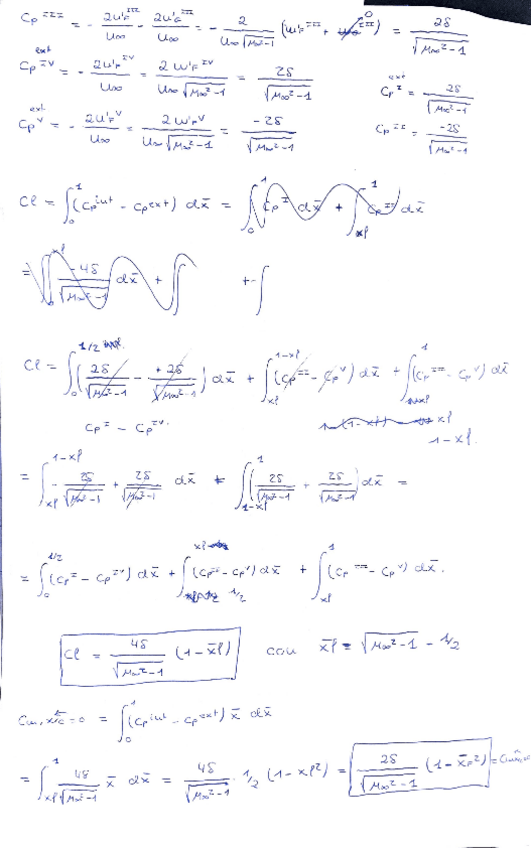 Cp^III = - 2u'F^III/U∞ - 2u'F/U∞ = - 2/(U∞ √(M∞²-1)) (w'F^III + w∞^III → 0) = 2δ/√(M∞²-1)
Cp^IV ext = - 2u'F^IV/U∞ = 2w'F^IV/(U∞ √(M∞²-1)) = 2δ/√(M∞²-1)    Cp^I ext = 2δ/√(M∞²-1)
Cp^V ext = - 2u'F^V/U∞ = 2w'F^V/(U∞ √(M∞²-1)) = -2δ/√(M∞²-1)    Cp^II = -2δ/√(M∞²-1)
Cl = ∫₀¹ (Cp^int - Cp^ext) dx̄ = ∫₀¹ Cp^I dx̄ + ∫_xP^1 Cp^II dx̄
= ∫₀^xP -4δ/√(M∞²-1) dx̄ + ∫ + ∫
Cl = ∫₀^1/2 (2δ/√(M∞²-1) - +2δ/√(M∞²-1)) dx̄ + ∫_xP^1-xP (Cp^II - Cp^V) dx̄ + ∫^1 (Cp^III - Cp^V) dx̄
Cp^I - Cp^IV.    xP
1-xP.
= ∫_xP^1-xP - 2δ/√(M∞²-1) + 2δ/√(M∞²-1) dx̄ + ∫_1-xP^1 (2δ/√(M∞²-1) + 2δ/√(M∞²-1)) dx̄ =
= ∫₀^1/2 (Cp^I - Cp^IV) dx̄ + ∫_1/2^xP (Cp^II - Cp^V) dx̄ + ∫_xP^1 (Cp^III - Cp^V) dx̄.
Cl = 4δ/√(M∞²-1) (1-x̄P)    con x̄P = √(M∞²-1) - 1/2
= ∫₀¹ (Cp^int - Cp^ext) x̄ dx̄
= ∫_xP^1 4δ/√(M∞²-1) x̄ dx̄ = 4δ/√(M∞²-1) · 1/2 (1-xP²) = 2δ/√(M∞²-1) (1-x̄P²)